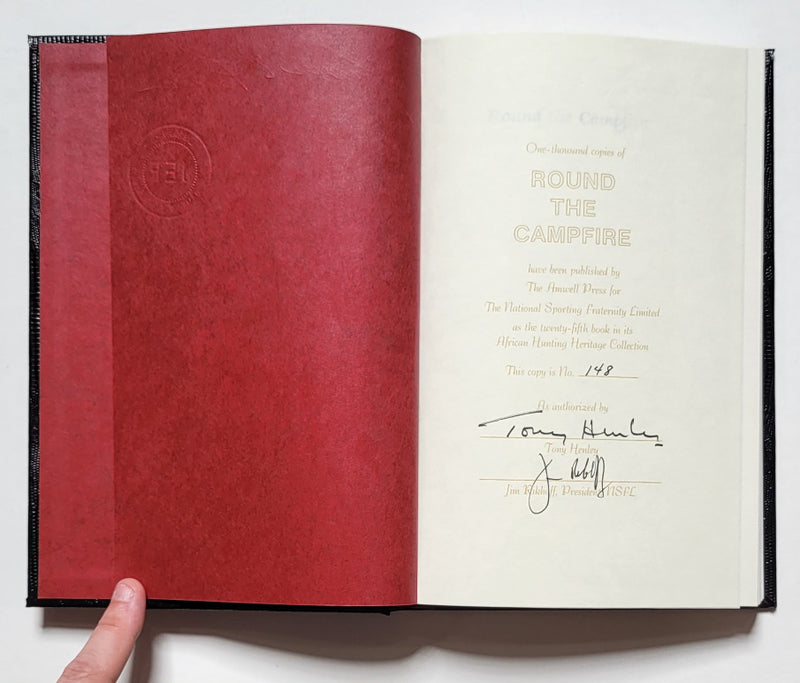 Round the Campfire
One-thousand copies of
ROUND
THE
CAMPFIRE
have been published by
The Amwell Press for
The National Sporting Fraternity Limited
as the twenty-fifth book in its
African Hunting Heritage Collection
This copy is No. 148
As authorized by
Tony Henley
Tony Henley
Jim Rikhoff, President NSFL